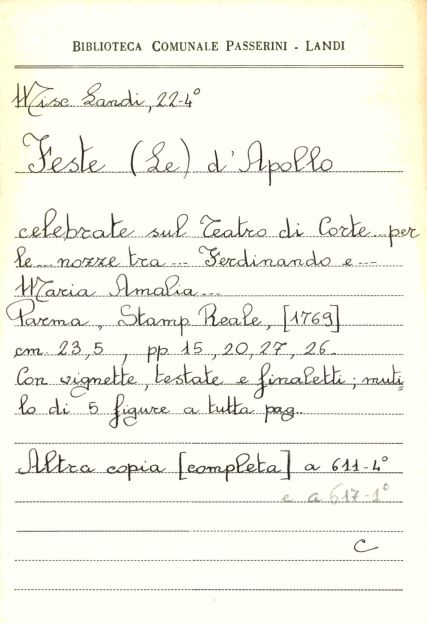 BIBLIOTECA COMUNALE PASSERINI - LANDI
Misc. Landi, 22-4°
Feste (Le) d'Apollo
celebrate sul Teatro di Corte...per
le...nozze tra... Ferdinando e...
Maria Amalia...
Parma, Stamp. Reale, [1769]
cm. 23,5, pp 15, 20, 27, 26.
Con vignette, testate e finaletti; muti=
lo di 5 figure a tutta pag..
Altra copia [completa] a 611-4°
e a 617-1°
C